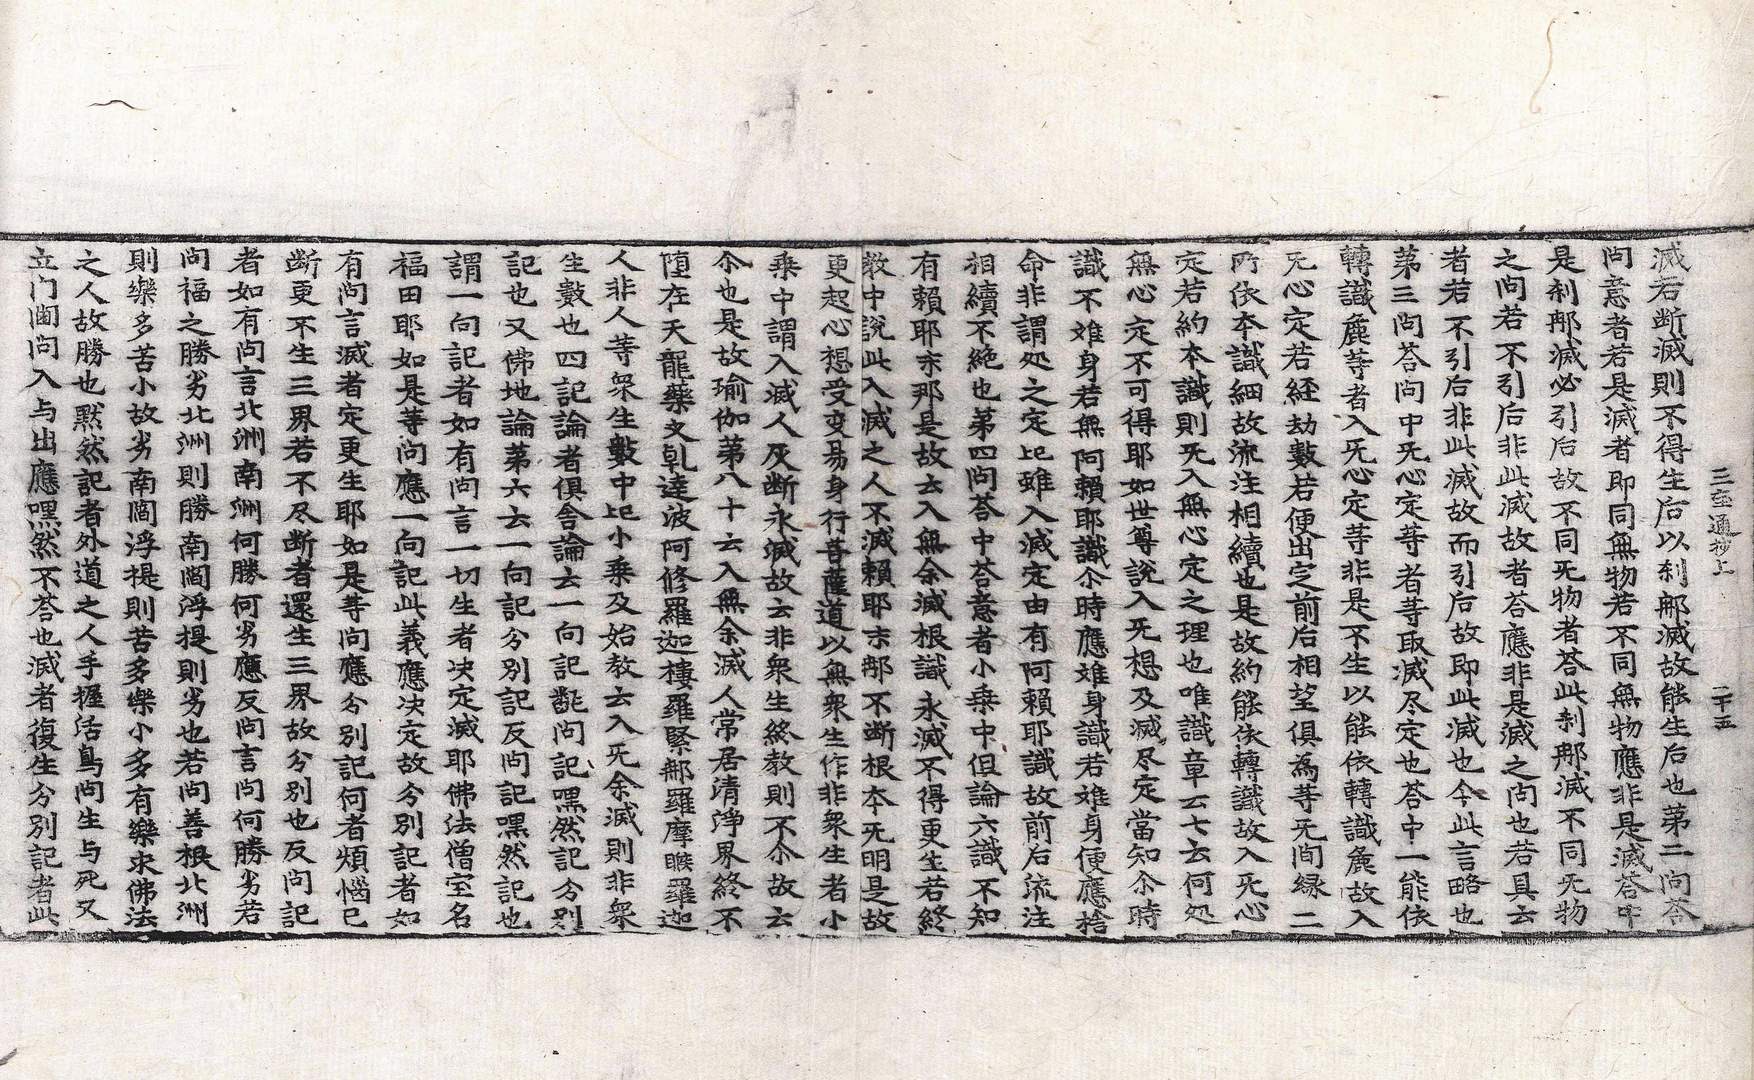 三宝通抄上　二十五
滅若断滅則不得生后以刹那滅故能生后也第二问荅
问意者若是滅者即同無物若不同無物應非是滅荅中
是刹那滅必引后故不同无物者荅此刹那滅不同无物
之问若不引后非此滅故者荅應非是滅之问也若具云
者若不引后非此滅故而引后故即此滅也今此言略也
第三问荅问中无心定等者等取滅尽定也荅中一能依
轉識麁等者入无心定等非是不生以能依轉識麁故入
无心定若経劫數若便出定前后相望俱為等无间縁二
所依本識細故流注相續也是故約能依轉識故入无心
定若約本識則无入無心定之理也唯識章云七云何処
無心定不可得耶如世尊說入无想及滅尽定當知尒時
識不难身若無阿賴耶識尒時應难身識若难身便應捨
命非謂処之定比雖入滅定由有阿賴耶識故前后流注
相續不絶也第四问荅中荅意者小乗中但論六識不知
有賴耶末那是故云入無余滅根識永滅不得更生若終
教中說此入滅之人不滅賴耶末那不断根本无明是故
更起心想受変易身行菩薩道以無衆生作非衆生者小
乗中謂入滅人灰断永滅故云非衆生終教則不尒故云
尒也是故瑜伽第八十云入無余滅人常居清淨界終不
堕在天龍藥叉乹達波阿修羅迦樓羅緊那羅摩睺羅迦
人非人等衆生數中比小乗及始教云入无余滅則非衆
生數也四記論者俱舎論云一向記髭问記嘿然記分別
記也又佛地論第六云一向記分別記反问記嘿然記也
謂一向記者如有问言一切生者决定滅耶佛法僧宝名
福田耶如是等问應一向記此義應决定故分別記者如
有问言滅者定更生耶如是等问應分別記何者煩惱已
断更不生三界若不尽断者還生三界故分別也反问記
者如有问言北洲南洲何勝何劣應反问言问何勝劣若
问福之勝劣北洲則勝南閻浮提則劣也若问善根北洲
則樂多苦小故劣南閻浮提則苦多樂小多有樂求佛法
之人故勝也黙然記者外道之人手握活鳥问生与死又
立门閫问入与出應嘿然不荅也滅者復生分別記者此